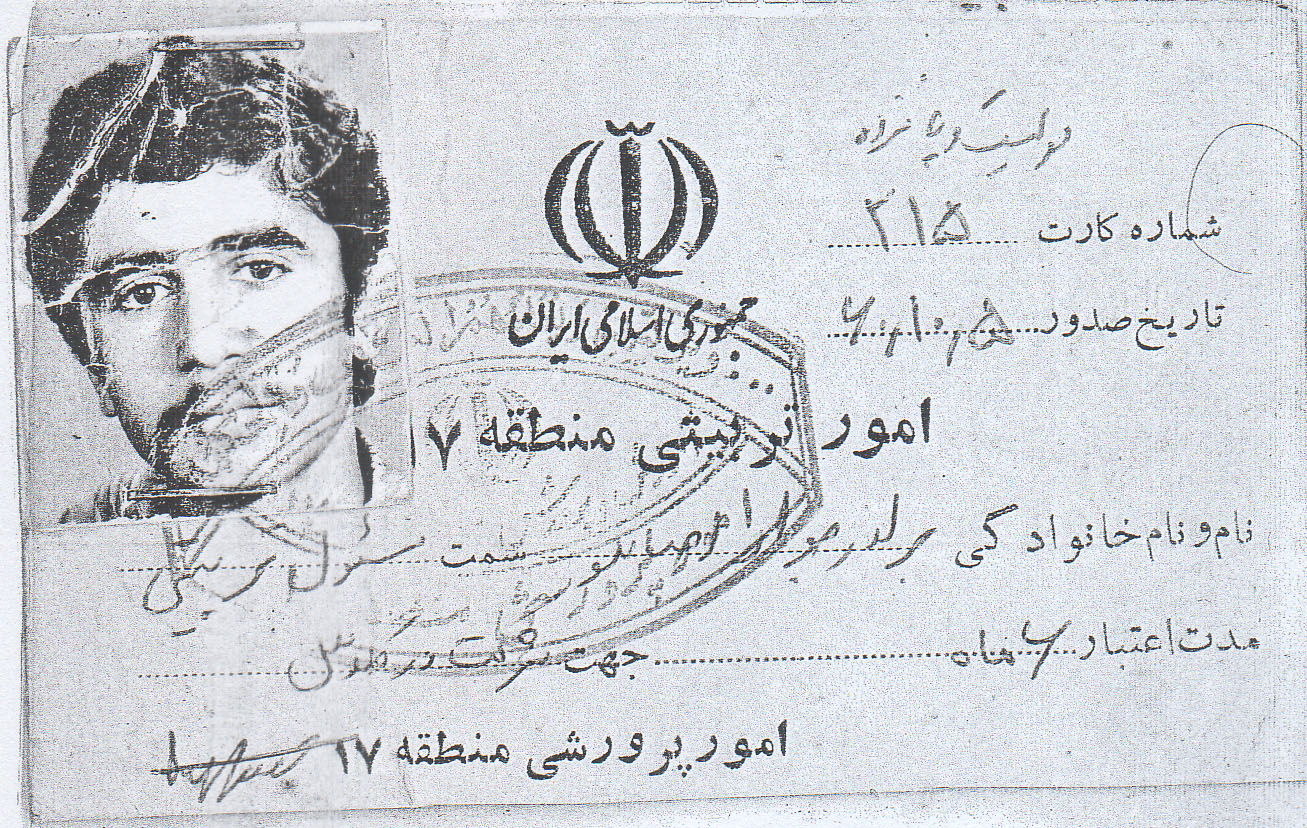 دولیست و پانزده
شماره کارت ۲۱۵
تاریخ صدور ۶,۱۰,۵
جمهوری اسلامی ایران
امور تربیتی منطقه ۱۷
نام و نام خانوادگی برادر سمت مسئول
مدت اعتبار ۶ ماه جهت شرکت در
امور پرورشی منطقه ۱۷